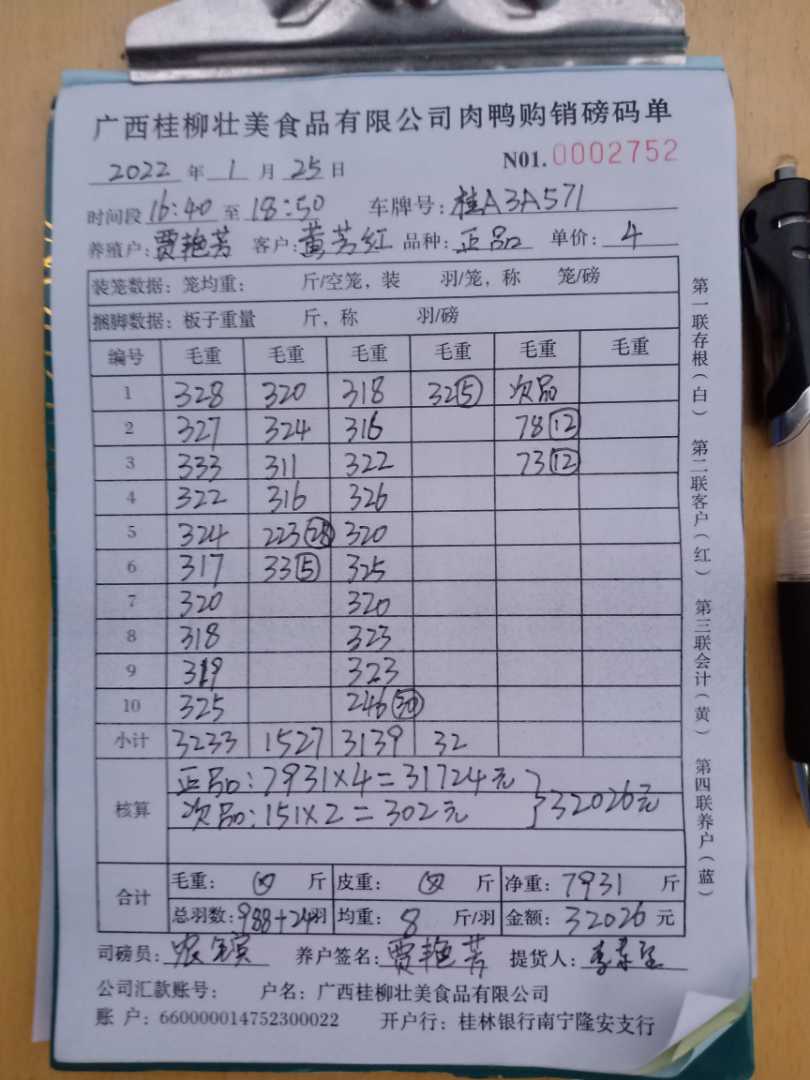 广西桂柳壮美食品有限公司肉鸭购销磅码单
2022 年 1 月 25 日 N01. 0002752
时间段 16:40 至 18:50 车牌号: 桂A3A571
养殖户: 贾艳芳 客户: 黄芳红 品种: 正品 单价: 4
装笼数据: 笼均重: 斤/空笼, 装 羽/笼, 称 笼/磅
捆脚数据: 板子重量 斤, 称 羽/磅
编号 毛重 毛重 毛重 毛重 毛重 毛重
1 328 320 318 32⑤ 次品
2 327 324 316 78⑫
3 333 311 322 73⑫
4 322 316 326
5 324 223㉘ 320
6 317 33⑤ 325
7 320 320
8 318 323
9 319 323
10 325 246㉚
小计 3233 1527 3139 32
核算 正品: 7931×4=31724元
次品: 151×2=302元 }32026元
合计 毛重: 斤 皮重: 斤 净重: 7931 斤
总羽数: 988+24羽 均重: 8 斤/羽 金额: 32026 元
司磅员: 养户签名: 贾艳芳 提货人:
公司汇款账号: 户名: 广西桂柳壮美食品有限公司
账 户: 660000014752300022 开户行: 桂林银行南宁隆安支行
第一联存根(白) 第二联客户(红) 第三联会计(黄) 第四联养户(蓝)